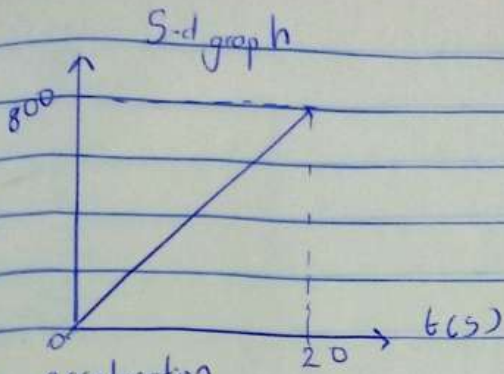 S-d graph
800
0
20
t(s)